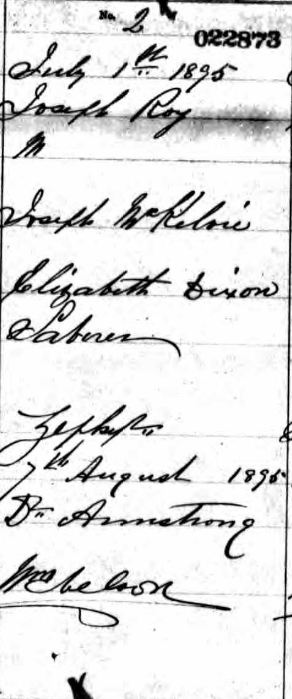 No. 2
022873
July 1st 1895
Joseph Roy
M
Joseph McKelvie
Elizabeth Dixon
Laborer
Zephyr
7th August 1895
Dr Armstrong